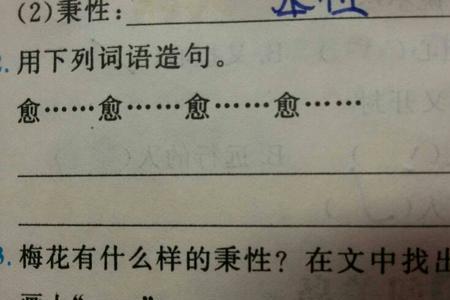 (2)秉性：本性
2.用下列词语造句。
愈……愈……愈……愈……
3.梅花有什么样的秉性？在文中找出